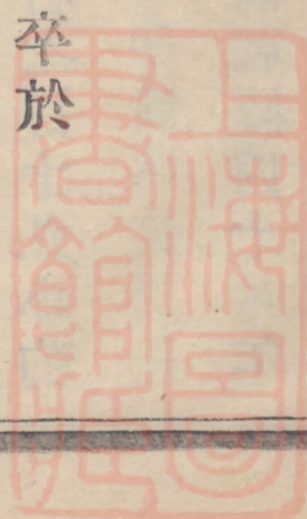 卒於
上海圖
書館藏